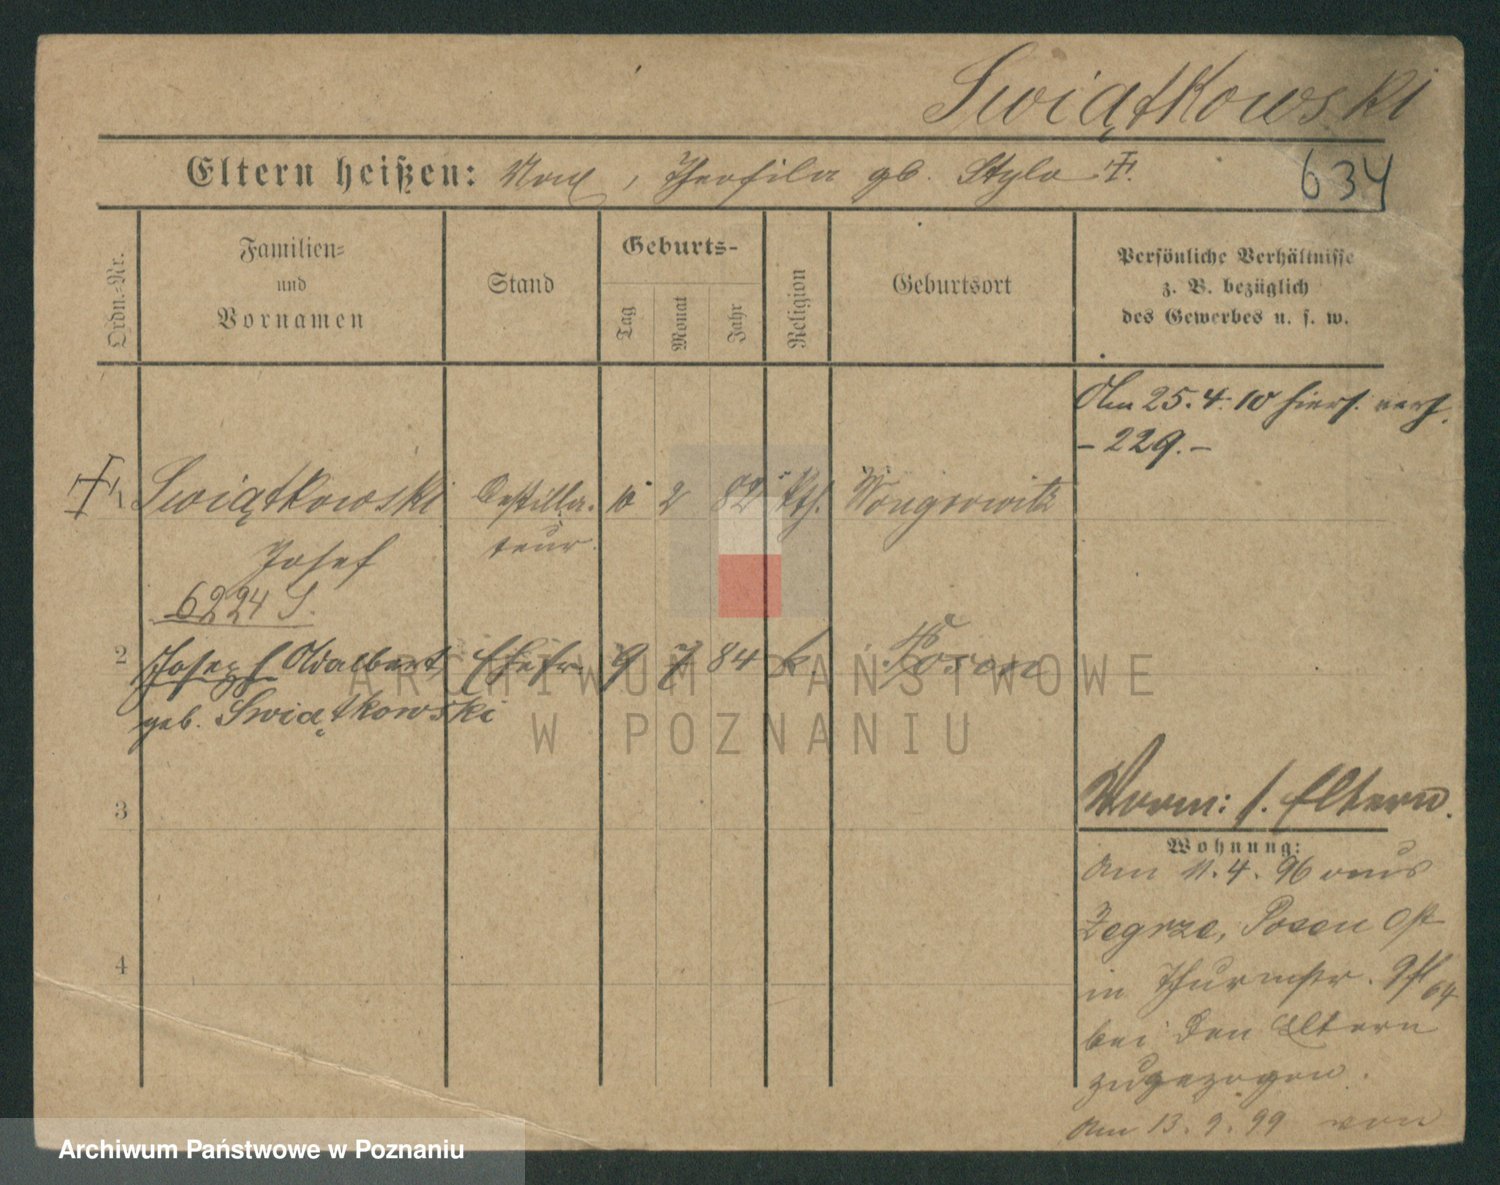 Swiątkowski
Eltern heißen: , Theofila gb. Stylo
634
Ordn.-Nr.
Familien-
und
Vornamen
Stand
Geburts-
Tag
Monat
Jahr
Religion
Geburtsort
Persönliche Verhältnisse
z. B. bezüglich
des Gewerbes u. s. w.
Am 25.4.10 hiers. verh.
- 229. -
1 Swiątkowski Destilla- 10 2 82 kth. Wongrowitz
Josef teur.
6224 S.
2 Josepha Adalberta Ehefr. 9 7 84 k. Posen
geb. Swiątkowski
ARCHIWUM PAŃSTWOWE
W POZNANIU
3
Vorm: s. Eltern.
Wohnung:
Am 11.4.96 aus
Zegrze, Posen Ost
in Thurmstr.
bei den Eltern
zugezogen.
am 13.9.99 von
4
Archiwum Państwowe w Poznaniu